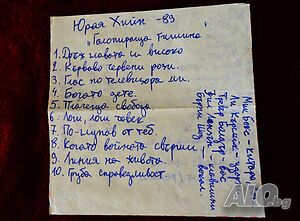 Юрая Хийп - 89
"Галопираща Тишина"
1. Дръж главата си високо
2. Кърваво червени рози.
3. Глас по телевизора ми.
4. Богато дете.
5. Плачеща свобода
6. Лош, лош човек
7. По-шумен от теб
8. Когато войната свърши
9. Линия на живота.
10. Груба справедливост.
Мик Бокс - китара
Ли Керслейк - ударни
Тревър Болдър - бас
Фил Ланзон - клавишни
Бърни Шоу - вокал.
ALO.bg